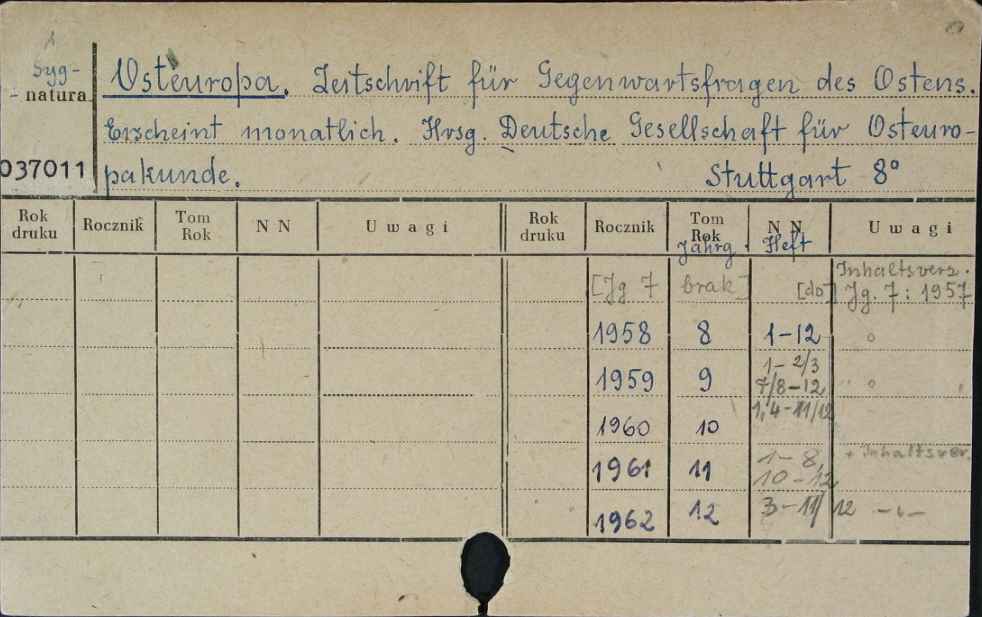 Syg-
natura
Osteuropa. Zeitschrift für Gegenwartsfragen des Ostens.
Erscheint monatlich. Hrsg. Deutsche Gesellschaft für Osteuro-
037011 pakunde. Stuttgart 8°
Rok druku Rocznik Tom Rok N N Uwagi Rok druku Rocznik Tom Rok Jahrg. N N Heft Uwagi
[Jg 7 brak] [do] Inhaltsverz. Jg. 7: 1957
1958 8 1-12 "
1959 9 1-2/3 7/8-12 "
1960 10 1, 4-11/12
1961 11 1-8, 10-12 + Inhaltsver.
1962 12 3-11/12 -"-